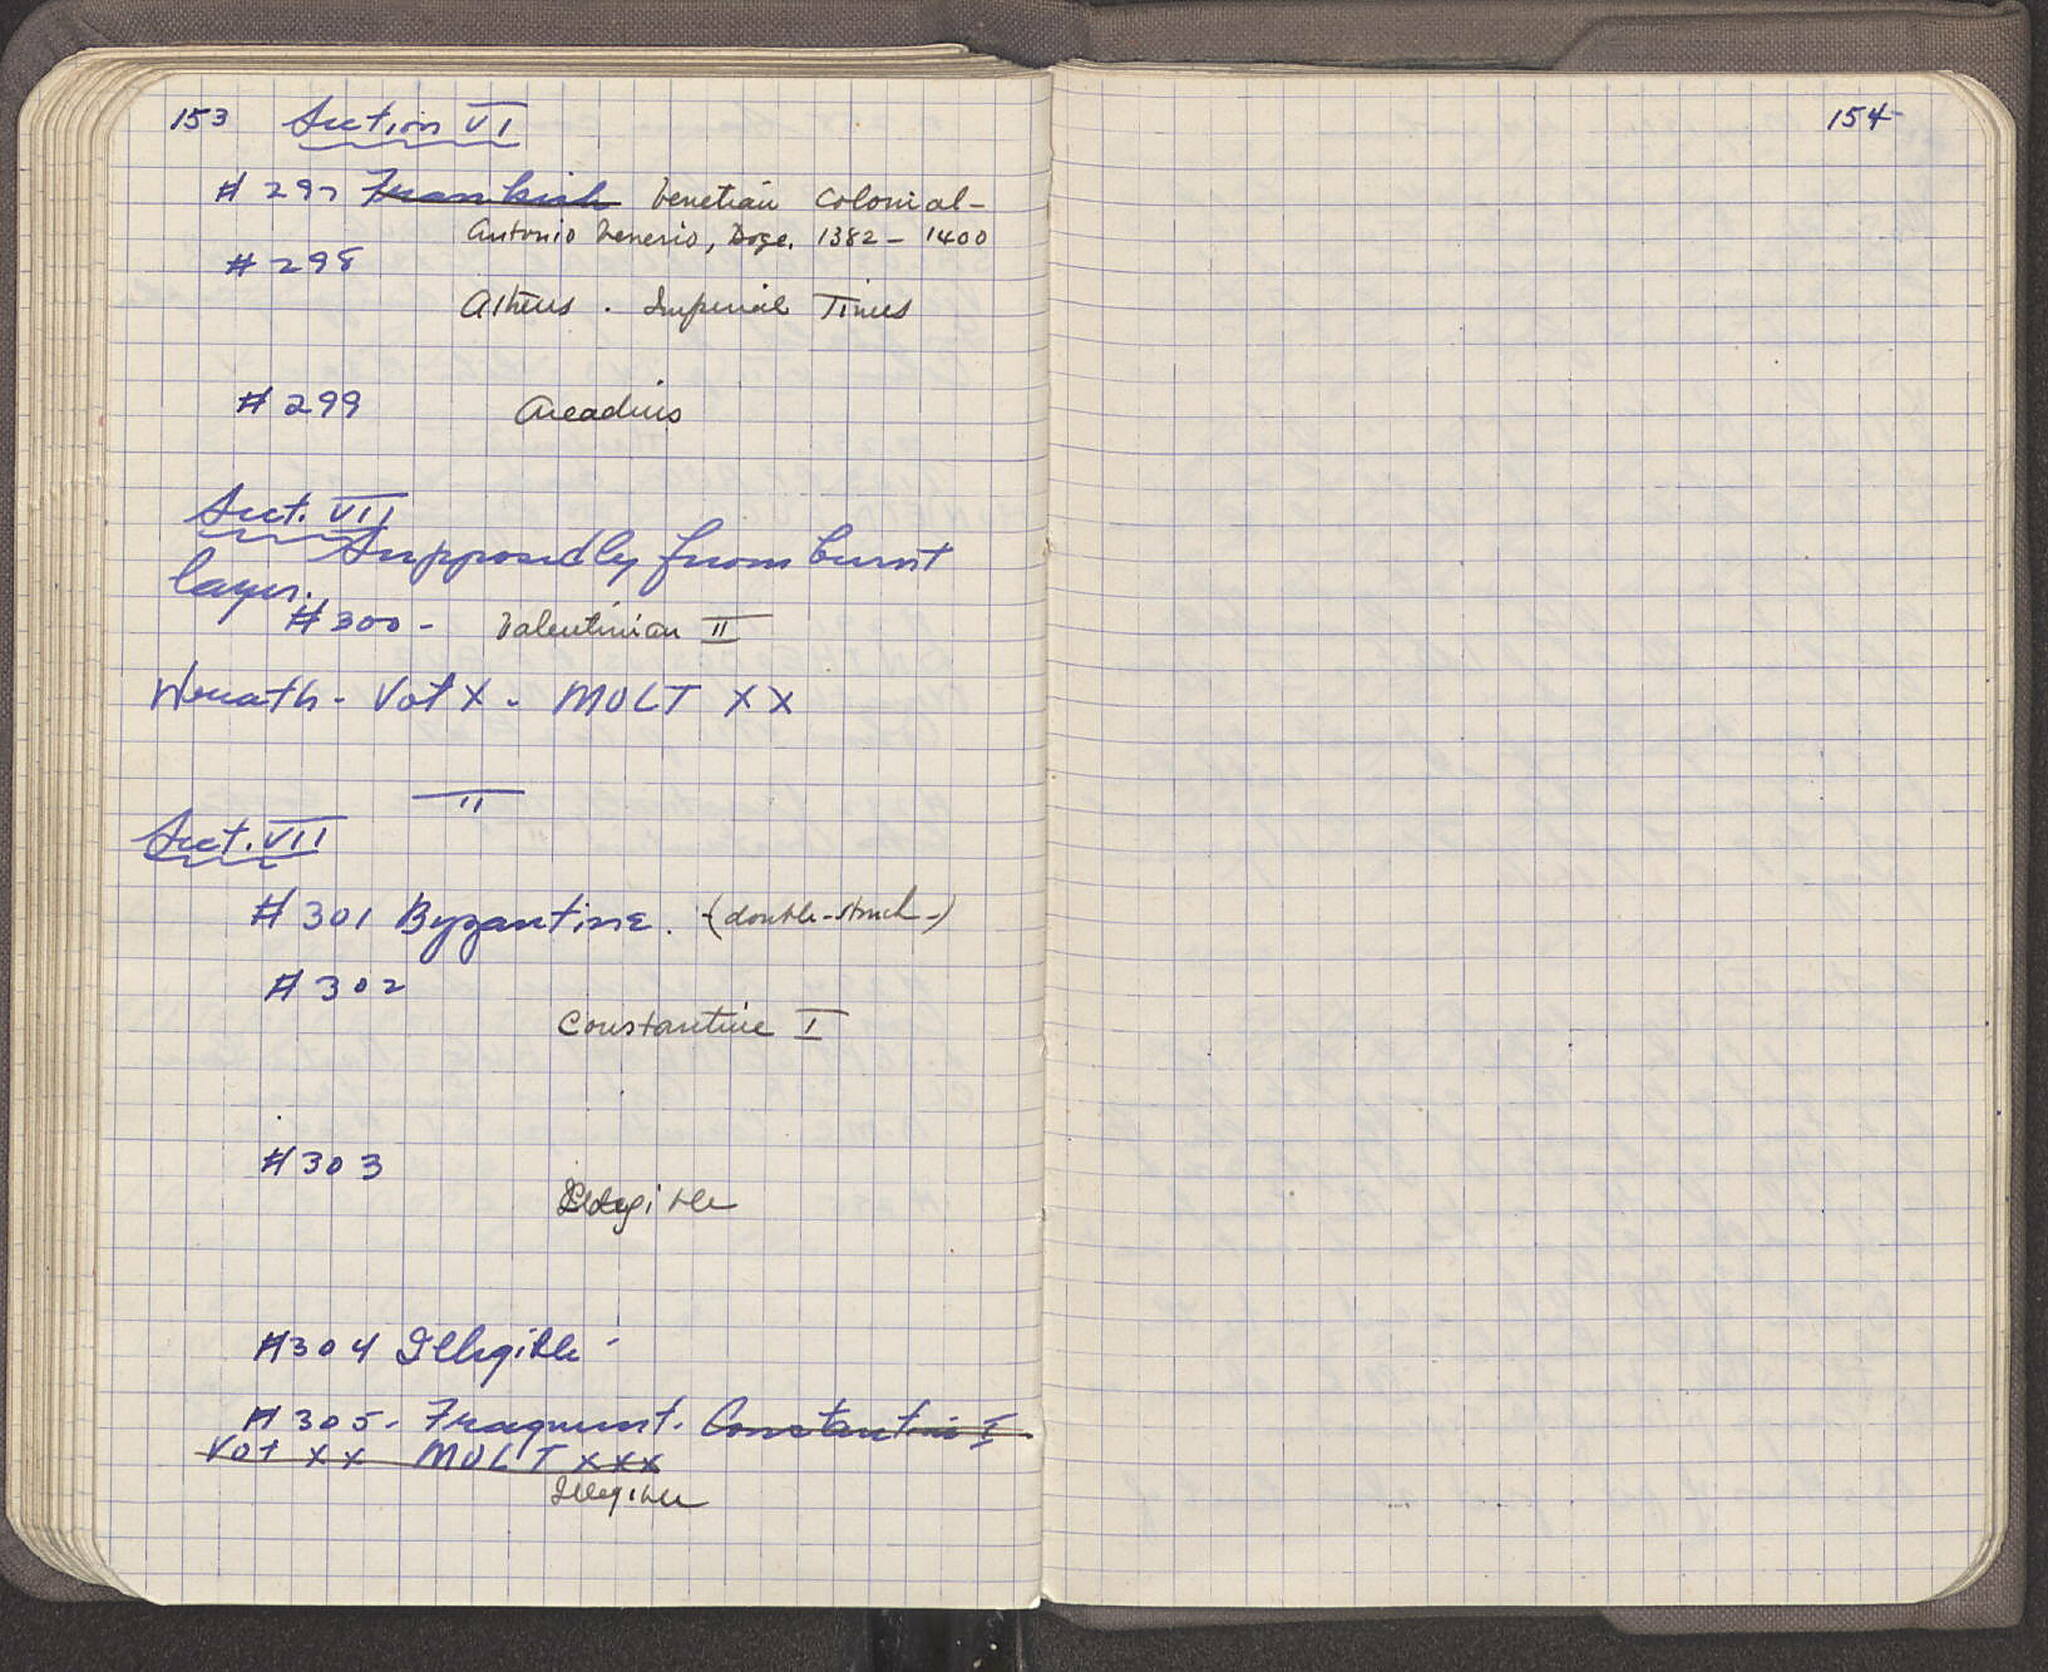 153 Section VI
# 297 Frankish Venetian Colonial-
Antonio Venerio, Doge. 1382 - 1400
# 298
Athens . Imperial Times
# 299 Arcadius
Sect. VII
Supposedly from burnt
layer.
# 300 - Valentinian II
Wreath - Vot X - MULT XX
"
Sect. VII
# 301 Byzantine. (double-struck-)
# 302
Constantine I
# 303
Illegible
# 304 Illegible -
# 305 - Fragment. Constantius I
Vot XX MULT XXX
Illegible
154